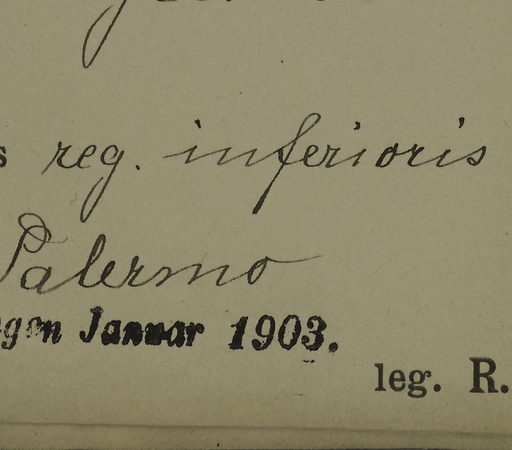 s reg. inferioris
Palermo
gen Januar 1903.
leg. R.